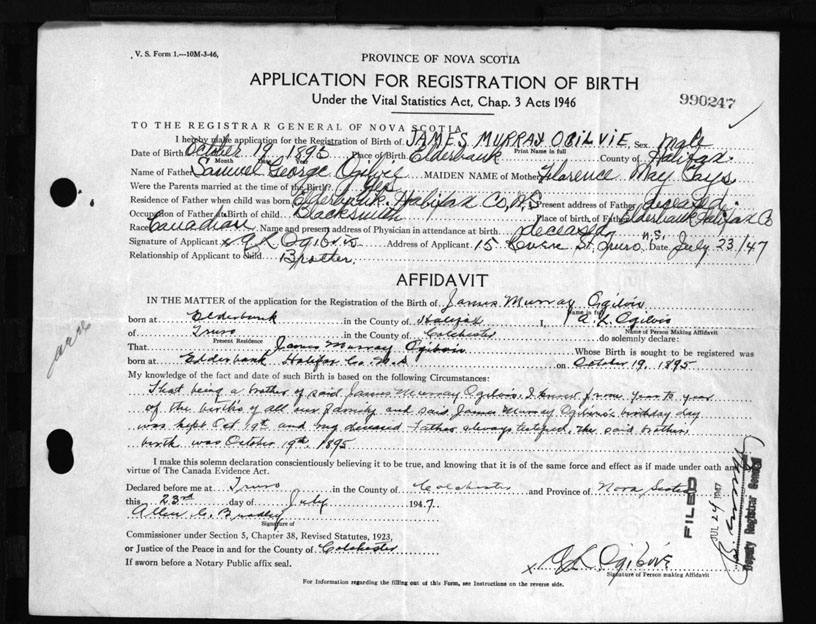 V. S. Form 1.—10M-3-46.
PROVINCE OF NOVA SCOTIA
APPLICATION FOR REGISTRATION OF BIRTH
Under the Vital Statistics Act, Chap. 3 Acts 1946
990247
TO THE REGISTRAR GENERAL OF NOVA SCOTIA
I hereby make application for the Registration of Birth of JAMES MURRAY OGILVIE Sex Male
Print Name in full
Date of Birth October 19, 1895 Place of Birth Elderbank County of Halifax
Month Day Year
Name of Father Samuel George Ogilvie MAIDEN NAME of Mother Florence May
Were the Parents married at the time of the Birth? Yes
Residence of Father when child was born Elderbank, Halifax Co, N.S Present address of Father deceased
Occupation of Father at birth of child Blacksmith Place of birth of Father Elderbank Halifax Co
N.S.
Race Canadian Name and present address of Physician in attendance at birth deceased
Signature of Applicant x Ogilvie Address of Applicant 15 St, Truro Date July 23/47
Relationship of Applicant to child Brother
AFFIDAVIT
IN THE MATTER of the application for the Registration of the Birth of James Murray Ogilvie
Name in full
born at Elderbank in the County of Halifax I, A L Ogilvie
Name of Person Making Affidavit
of Truro in the County of Colchester do solemnly declare:
Present Residence
That James Murray Ogilvie Whose Birth is sought to be registered was
born at Elderbank, Halifax Co. on October 19, 1895
My knowledge of the fact and date of such Birth is based on the following Circumstances:
That being a brother of said James Murray Ogilvie, I know from year to year
of the births of all our family and said James Murray Ogilvie's birthday day
was kept Oct 19th and my deceased Father always the said brothers
birth was October 19th, 1895
I make this solemn declaration conscientiously believing it to be true, and knowing that it is of the same force and effect as if made under oath and
virtue of The Canada Evidence Act.
Declared before me at Truro in the County of Colchester and Province of Nova Scotia
this 23rd day of July 1947.
Allen C. Bradley
Signature of
Commissioner under Section 5, Chapter 38, Revised Statutes, 1923,
or Justice of the Peace in and for the County of Colchester
If sworn before a Notary Public affix seal.
x Ogilvie
Signature of Person making Affidavit
For Information regarding the filling out of this Form, see Instructions on the reverse side.
FILED
JUL 24 1947
Deputy Registrar General